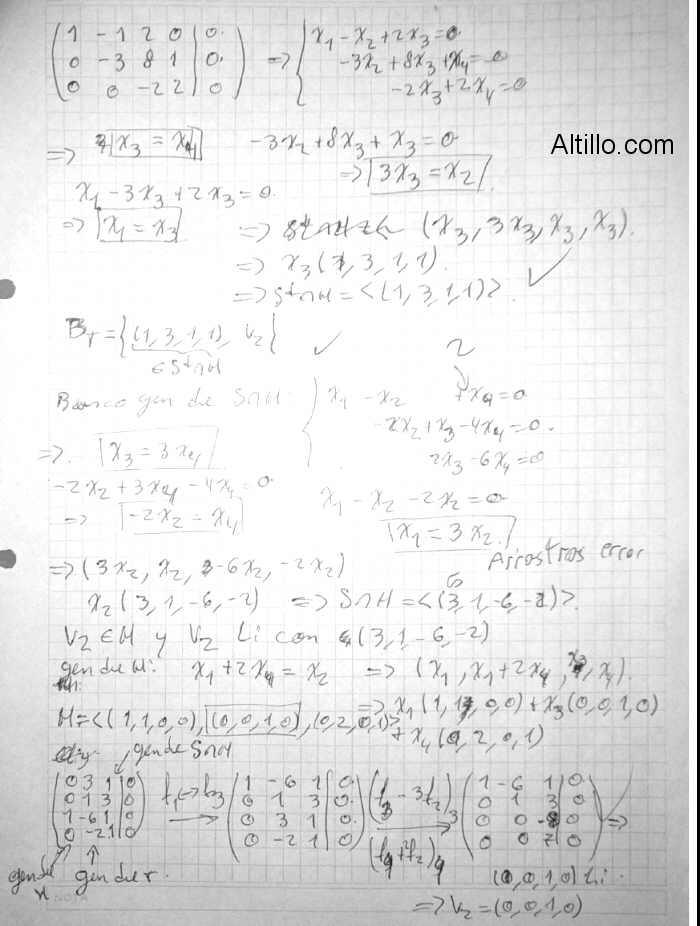 ( 1 -1 2 0 | 0 ; 0 -3 8 1 | 0 ; 0 0 -2 2 | 0 ) => { x1 - x2 + 2x3 = 0
-3x2 + 8x3 + x4 = 0
-2x3 + 2x4 = 0
=> x3 = x4   -3x2 + 8x3 + x3 = 0
Altillo.com
=> 3x3 = x2
x1 - 3x3 + 2x3 = 0
=> x1 = x3   => (x3, 3x3, x3, x3).
=> x3 (1, 3, 1, 1).
=> S+∩H = <(1, 3, 1, 1)>. ✓
BT = { (1, 3, 1, 1), v2 } ✓
∈ S+∩H
2
Busco gen de S∩H: { x1 - x2 + x4 = 0
-2x2 + x3 - 4x4 = 0.
2x3 - 6x4 = 0
=> x3 = 3x4
-2x2 + 3x4 - 4x4 = 0
=> -2x2 = x4
x1 - x2 - 2x2 = 0
x1 = 3x2.
Arrastras error
=> (3x2, x2, -6x2, -2x2)
x2 (3, 1, -6, -2) => S∩H = <(3, 1, -6, -2)>.
v2 ∈ H y v2 Li con (3, 1, -6, -2)
gen de H: x1 + 2x4 = x2 => (x1, x1 + 2x4, x3, x4).
=> x1 (1, 1, 0, 0) + x3 (0, 0, 1, 0)
+ x4 (0, 2, 0, 1)
H = <(1, 1, 0, 0), (0, 0, 1, 0), (0, 2, 0, 1)>
gen de S∩H
( 0 3 1 | 0 ; 0 1 3 | 0 ; 1 -6 1 | 0 ; 0 -2 1 | 0 ) f1 <-> f3 ( 1 -6 1 | 0 ; 0 1 3 | 0 ; 0 3 1 | 0 ; 0 -2 1 | 0 ) (f3 - 3f2)3 (f4 + 2f2)4 ( 1 -6 1 | 0 ; 0 1 3 | 0 ; 0 0 -8 | 0 ; 0 0 7 | 0 ) =>
gen de H   gen de r.
(0, 0, 1, 0) Li.
=> v2 = (0, 0, 1, 0)